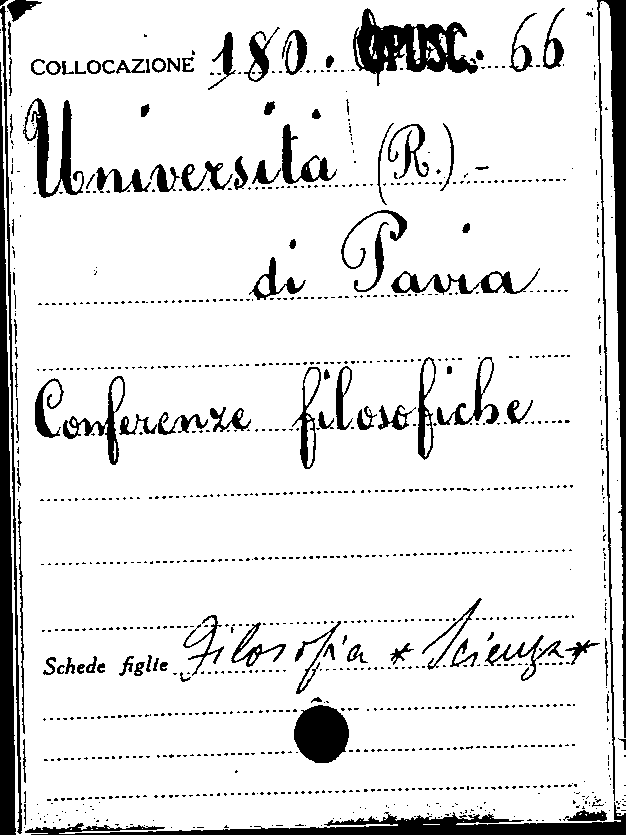 COLLOCAZIONE 180. OPUSC. 66
Università (R.) -
di Pavia
Conferenze filosofiche
Schede figlie Filosofia * Scienza *